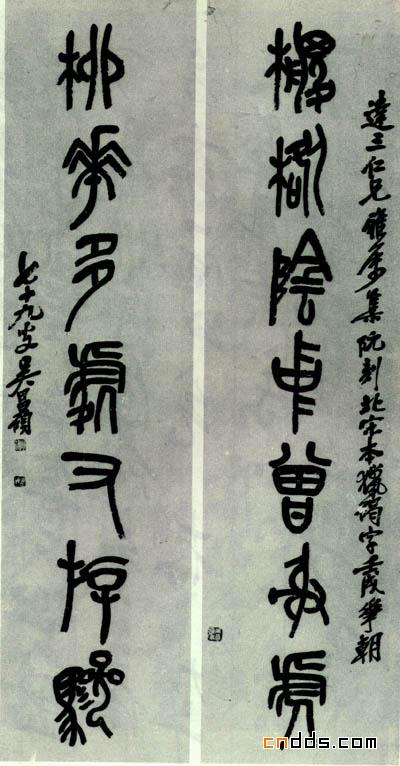 達三仁兄雅屬集阮刻北宋本獵碣字壬戌華朝
柳陰中曾射
桃華多處又
七十九叟吳昌碩
cndds.com